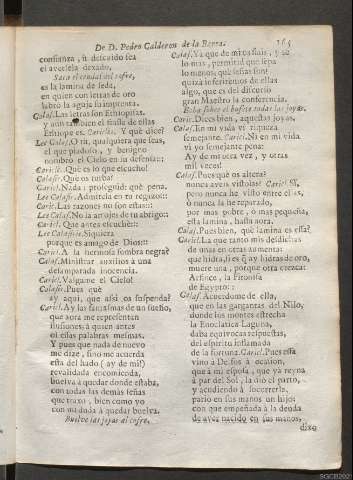 De D. Pedro Calderon de la Barca. 365
confianza, ò descuido sea
el averiela dexado.
Saca el cendal del cofre,
es la lamina de seda,
en quien con letras de oro
labrò la aguja la imprenta.
Calas. Las letras son Ethiopisas,
y aun tambien el traste de ellas
Ethiope es. Cariclea. Y què dice?
Lee Calas. O tu, qualquiera que seas,
el que piadoso, y benigno
nombro el Cielo en su defensa:::
Caricl. Què es lo que escucho!
Calasir. Què os turba?
Caricl. Nada: proseguid: què pena.
Lee Calasir. Admitela en tu regazo:::
Caricl. Las razones no son estas:::
Lee Calas. No la arrojes de tu abrigo:::
Caricl. Que antes escuchè:::
Lee Calasir. Siquiera
porque es amago de Dios:::
Caricl. A la memoria sombra negra?
Calas. Ministrar auxilios à una
desamparada inocencia.
Caricl. Valgame el Cielo!
Calasir. Pues què
ay aqui, que assi os suspenda?
Caricl. Ay las fantasmas de un sueño,
que aora me representan
ilusiones, à quien antes
oì essas palabras mesmas.
Y pues que nada de nuevo
me dize, sino me acuerda
esta del hado (ay de mi!)
revalidada encomienda,
buelva à quedar donde estaba,
con todas las demàs señas
que traxo, bien como yo
con mi duda à quedar buelva.
Buelve las joyas al cofre.
Calas. Yà que de mi os fiais, y se
lo mas, permitid que sepa
lo menos; què señas son?
quizà inferirèmos de ellas
algo, que es del discurso
gran Maestro la conferencia.
Buelve sobre el bufete todas las joyas.
Caricl. Dices bien, aquestas joyas.
Calas. En mi vida vì riqueza
semejante. Caricl. Ni en mi vida
vì yo semejante pena:
Ay de mi otra vez, y otras
mil veces!
Calas. Pues què os altera?
nunca aveis vistolas? Caricl. Sì,
pero nunca he visto entre ellas,
ò nunca la he reparado,
por mas pobre, ò mas pequeña,
esta lamina, hasta aora.
Calas. Pues bien, què lamina es essa?
Caricl. La que tanto mis desdichas
de unas en otras aumenta:
que hidra, si es q̃ ay hidras de oro,
muere una, porque otra crezca:
Arsince, la Pitonisa
de Egypto:::
Calas. Acuerdome de ella,
que en las gargantas del Nilo,
donde los montes estrecha
la Enoclatica Laguna,
daba equivocas respuestas,
del espiritu inflamada
de la fortuna. Caricl. Pues essa
vino à Delfos à ocasion,
que à mi esposa, que yà reyna
à par del Sol, la diò el parto,
y acudiendo à socorrerla,
pariò en sus manos un hijo;
con que empeñada à la deuda
de aver nacido en sus manos,
dixo